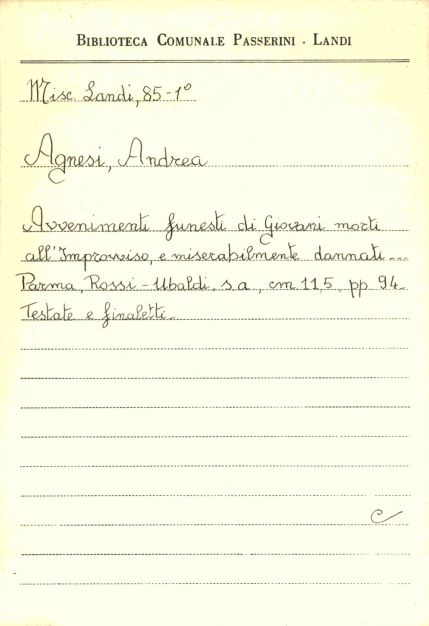 BIBLIOTECA COMUNALE PASSERINI - LANDI
Misc. Landi, 85-1º
Agnesi, Andrea
Avvenimenti funesti di Giovani morti
all'Improvviso, e miserabilmente dannati...
Parma, Rossi-Ubaldi, s.a., cm 11,5, pp. 94.
Testate e finaletti.
C